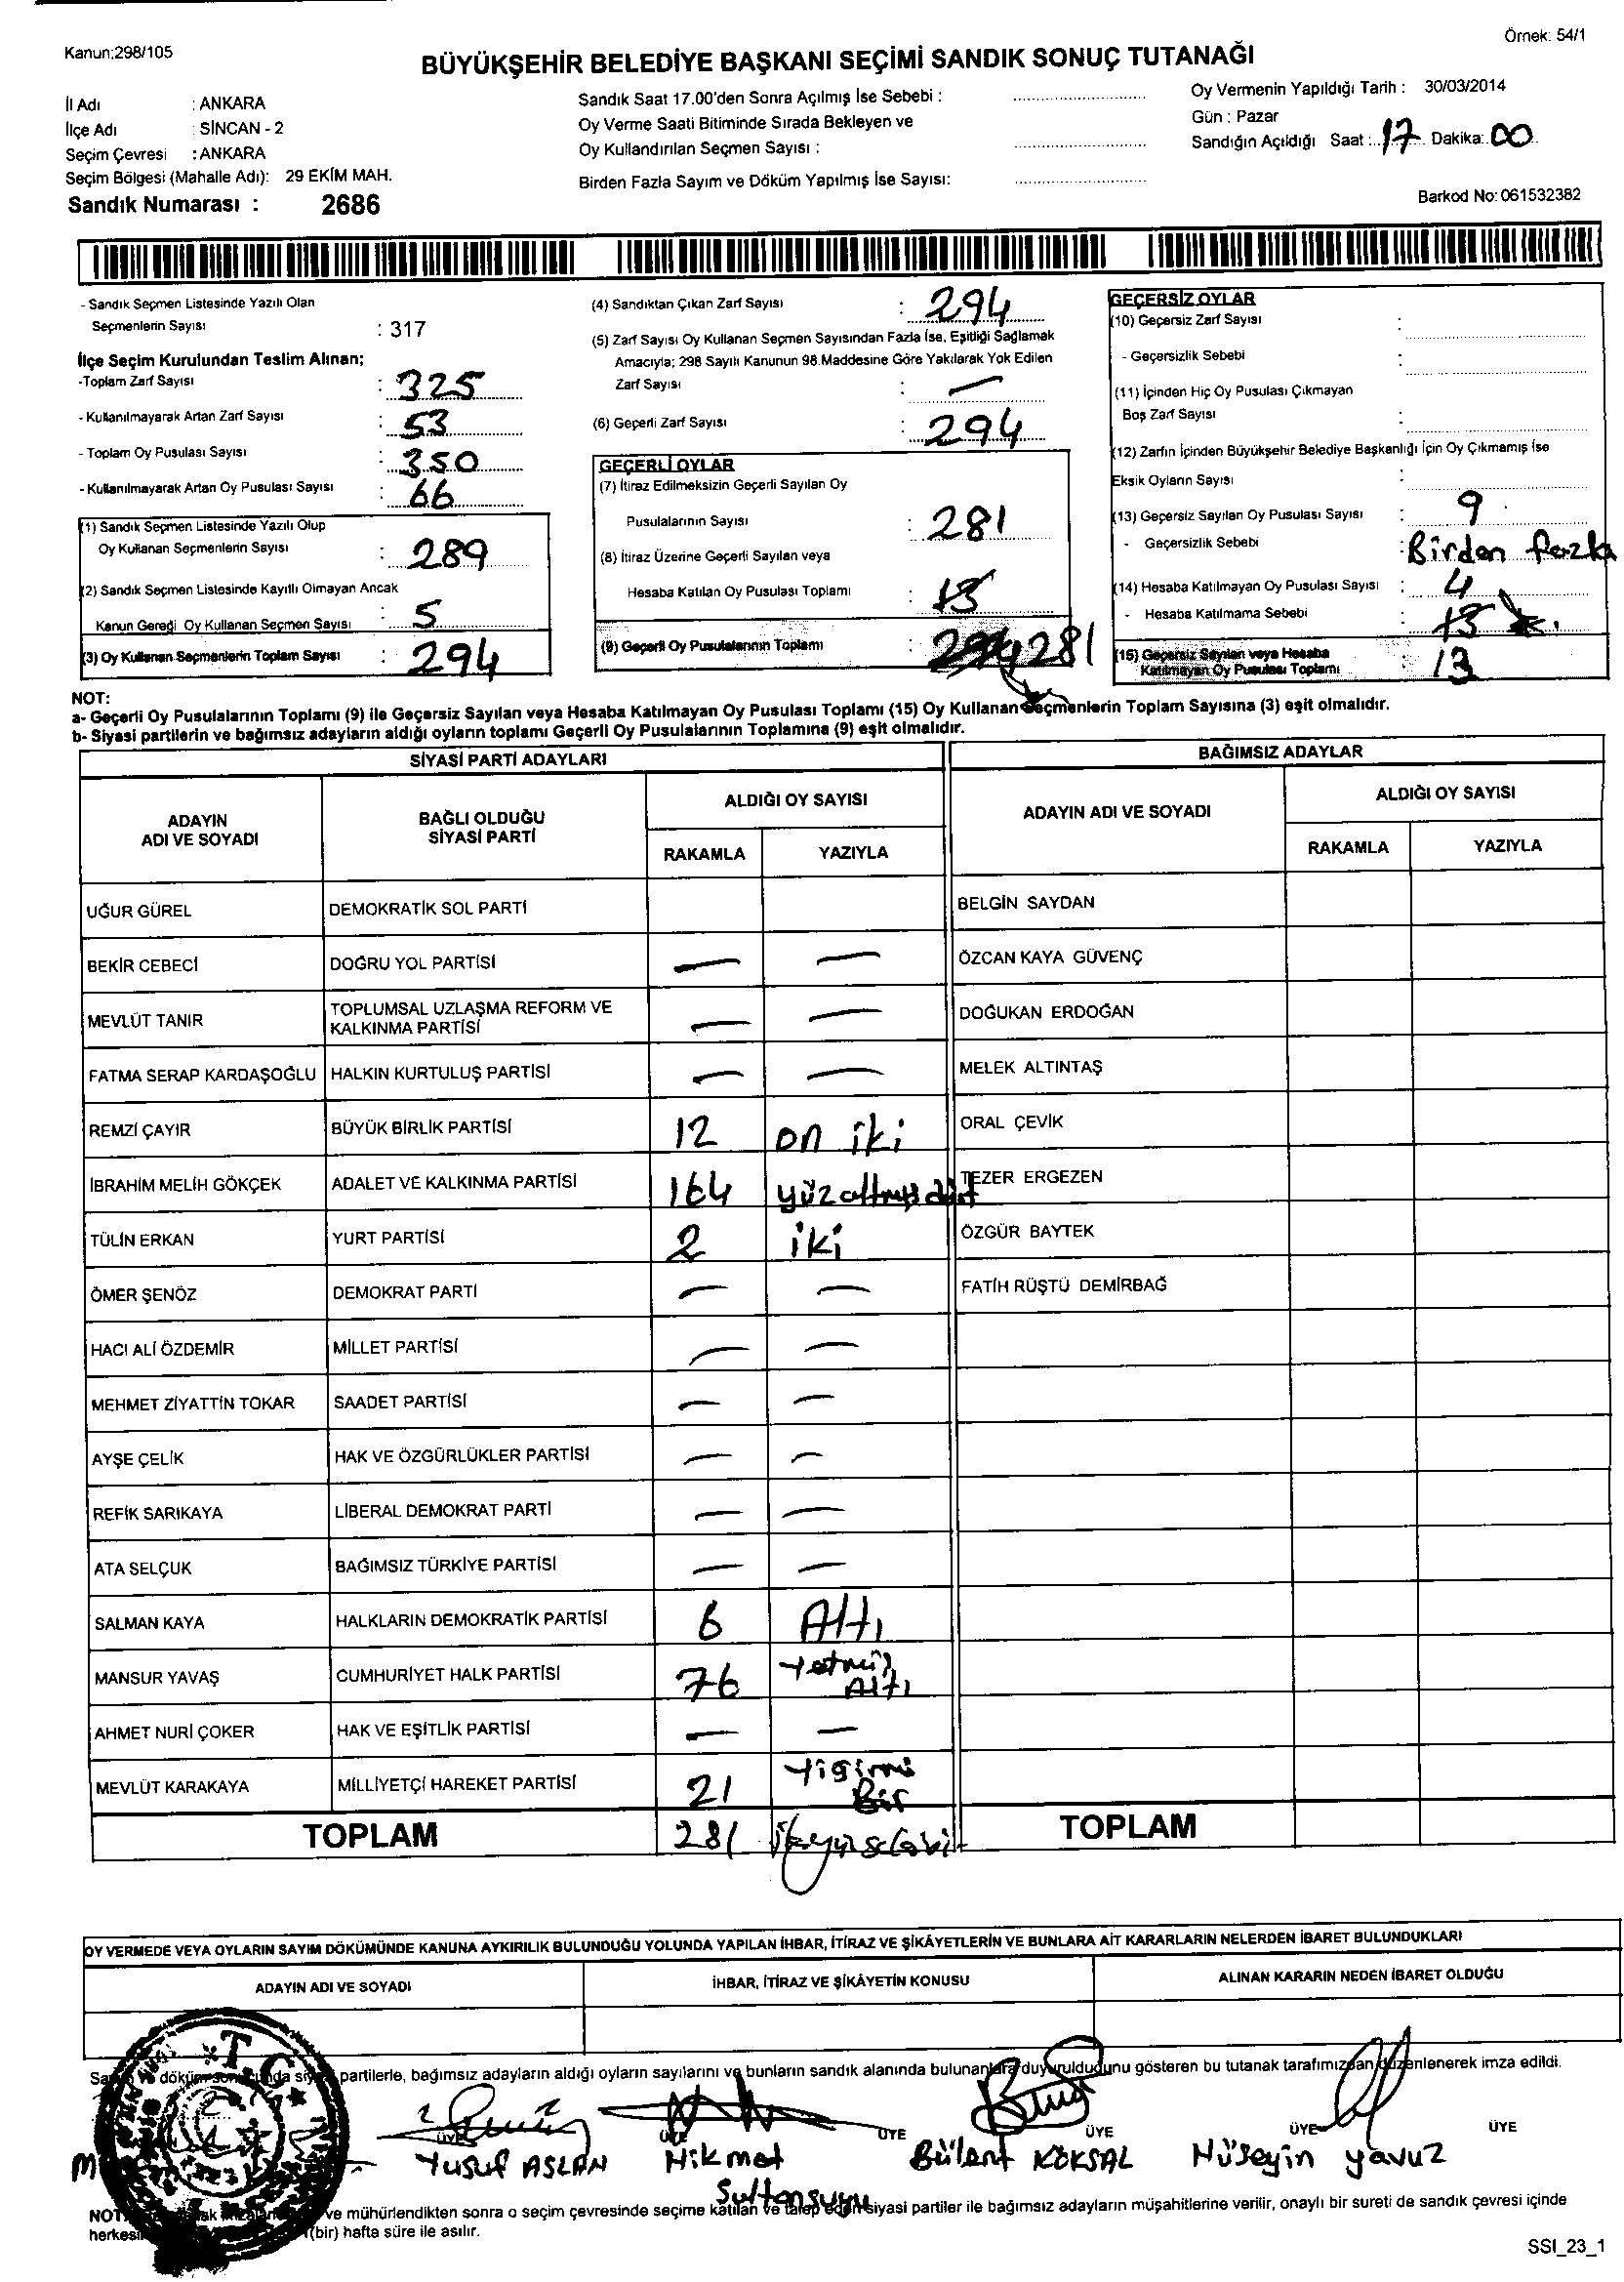 Kanun;298/105
Örnek: 54/1
BÜYÜKŞEHİR BELEDİYE BAŞKANI SEÇİMİ SANDIK SONUÇ TUTANAĞI
İl Adı : ANKARA
İlçe Adı : SİNCAN - 2
Seçim Çevresi : ANKARA
Seçim Bölgesi (Mahalle Adı): 29 EKİM MAH.
Sandık Numarası : 2686
Sandık Saat 17.00'den Sonra Açılmış İse Sebebi :
Oy Verme Saati Bitiminde Sırada Bekleyen ve
Oy Kullandırılan Seçmen Sayısı :
Birden Fazla Sayım ve Döküm Yapılmış İse Sayısı:
Oy Vermenin Yapıldığı Tarih : 30/03/2014
Gün : Pazar
Sandığın Açıldığı Saat : 17 Dakika: 00
Barkod No: 061532382
- Sandık Seçmen Listesinde Yazılı Olan
Seçmenlerin Sayısı : 317
İlçe Seçim Kurulundan Teslim Alınan;
-Toplam Zarf Sayısı : 325
- Kullanılmayarak Artan Zarf Sayısı : 53
- Toplam Oy Pusulası Sayısı : 350
- Kullanılmayarak Artan Oy Pusulası Sayısı : 66
(1) Sandık Seçmen Listesinde Yazılı Olup
Oy Kullanan Seçmenlerin Sayısı : 289
(2) Sandık Seçmen Listesinde Kayıtlı Olmayan Ancak
Kanun Gereği Oy Kullanan Seçmen Sayısı : 5
(3) Oy Kullanan Seçmenlerin Toplam Sayısı : 294
(4) Sandıktan Çıkan Zarf Sayısı : 294
(5) Zarf Sayısı Oy Kullanan Seçmen Sayısından Fazla İse, Eşitliği Sağlamak
Amacıyla; 298 Sayılı Kanunun 98.Maddesine Göre Yakılarak Yok Edilen
Zarf Sayısı : —
(6) Geçerli Zarf Sayısı : 294
GEÇERLİ OYLAR
(7) İtiraz Edilmeksizin Geçerli Sayılan Oy
Pusulalarının Sayısı : 281
(8) İtiraz Üzerine Geçerli Sayılan veya
Hesaba Katılan Oy Pusulası Toplamı : 13
(9) Geçerli Oy Pusulalarının Toplamı : 294 281
GEÇERSİZ OYLAR
(10) Geçersiz Zarf Sayısı :
- Geçersizlik Sebebi :
(11) İçinden Hiç Oy Pusulası Çıkmayan
Boş Zarf Sayısı :
(12) Zarfın İçinden Büyükşehir Belediye Başkanlığı İçin Oy Çıkmamış İse
Eksik Oyların Sayısı :
(13) Geçersiz Sayılan Oy Pusulası Sayısı : 9
- Geçersizlik Sebebi : Birden fazla
(14) Hesaba Katılmayan Oy Pusulası Sayısı : 4
- Hesaba Katılmama Sebebi : 13
(15) Geçersiz Sayılan veya Hesaba
Katılmayan Oy Pusulası Toplamı : 13
NOT:
a- Geçerli Oy Pusulalarının Toplamı (9) ile Geçersiz Sayılan veya Hesaba Katılmayan Oy Pusulası Toplamı (15) Oy Kullanan Seçmenlerin Toplam Sayısına (3) eşit olmalıdır.
b- Siyasi partilerin ve bağımsız adayların aldığı oyların toplamı Geçerli Oy Pusulalarının Toplamına (9) eşit olmalıdır.
SİYASİ PARTİ ADAYLARI
ADAYIN ADI VE SOYADI BAĞLI OLDUĞU SİYASİ PARTİ ALDIĞI OY SAYISI
RAKAMLA YAZIYLA
UĞUR GÜREL DEMOKRATİK SOL PARTİ
BEKİR CEBECİ DOĞRU YOL PARTİSİ — —
MEVLÜT TANIR TOPLUMSAL UZLAŞMA REFORM VE KALKINMA PARTİSİ — —
FATMA SERAP KARDAŞOĞLU HALKIN KURTULUŞ PARTİSİ — —
REMZİ ÇAYIR BÜYÜK BİRLİK PARTİSİ 12 on iki
İBRAHİM MELİH GÖKÇEK ADALET VE KALKINMA PARTİSİ 164 yüzaltmışdört
TÜLİN ERKAN YURT PARTİSİ 2 iki
ÖMER ŞENÖZ DEMOKRAT PARTİ — —
HACI ALİ ÖZDEMİR MİLLET PARTİSİ — —
MEHMET ZİYATTİN TOKAR SAADET PARTİSİ — —
AYŞE ÇELİK HAK VE ÖZGÜRLÜKLER PARTİSİ — —
REFİK SARIKAYA LİBERAL DEMOKRAT PARTİ — —
ATA SELÇUK BAĞIMSIZ TÜRKİYE PARTİSİ — —
SALMAN KAYA HALKLARIN DEMOKRATİK PARTİSİ 6 Altı
MANSUR YAVAŞ CUMHURİYET HALK PARTİSİ 76 Yetmiş Altı
AHMET NURİ ÇOKER HAK VE EŞİTLİK PARTİSİ — —
MEVLÜT KARAKAYA MİLLİYETÇİ HAREKET PARTİSİ 21 Yigirmi Bir
TOPLAM 281
BAĞIMSIZ ADAYLAR
ADAYIN ADI VE SOYADI ALDIĞI OY SAYISI
RAKAMLA YAZIYLA
BELGİN SAYDAN
ÖZCAN KAYA GÜVENÇ
DOĞUKAN ERDOĞAN
MELEK ALTINTAŞ
ORAL ÇEVİK
TEZER ERGEZEN
ÖZGÜR BAYTEK
FATİH RÜŞTÜ DEMİRBAĞ
TOPLAM
OY VERMEDE VEYA OYLARIN SAYIM DÖKÜMÜNDE KANUNA AYKIRILIK BULUNDUĞU YOLUNDA YAPILAN İHBAR, İTİRAZ VE ŞİKÂYETLERİN VE BUNLARA AİT KARARLARIN NELERDEN İBARET BULUNDUKLARI
ADAYIN ADI VE SOYADI İHBAR, İTİRAZ VE ŞİKÂYETİN KONUSU ALINAN KARARIN NEDEN İBARET OLDUĞU
T.C.
partilerle, bağımsız adayların aldığı oyların sayılarını ve bunların sandık alanında bulunanlara duyurulduğunu gösteren bu tutanak tarafımızdan düzenlenerek imza edildi.
ÜYE ÜYE ÜYE ÜYE ÜYE ÜYE
Yusuf ASLAN Hikmet Sultansuyu Bülent KÖKSAL Hüseyin yavuz
NOT: ve mühürlendikten sonra o seçim çevresinde seçime katılan ve talep eden siyasi partiler ile bağımsız adayların müşahitlerine verilir, onaylı bir sureti de sandık çevresi içinde
(bir) hafta süre ile asılır.
SSI_23_1